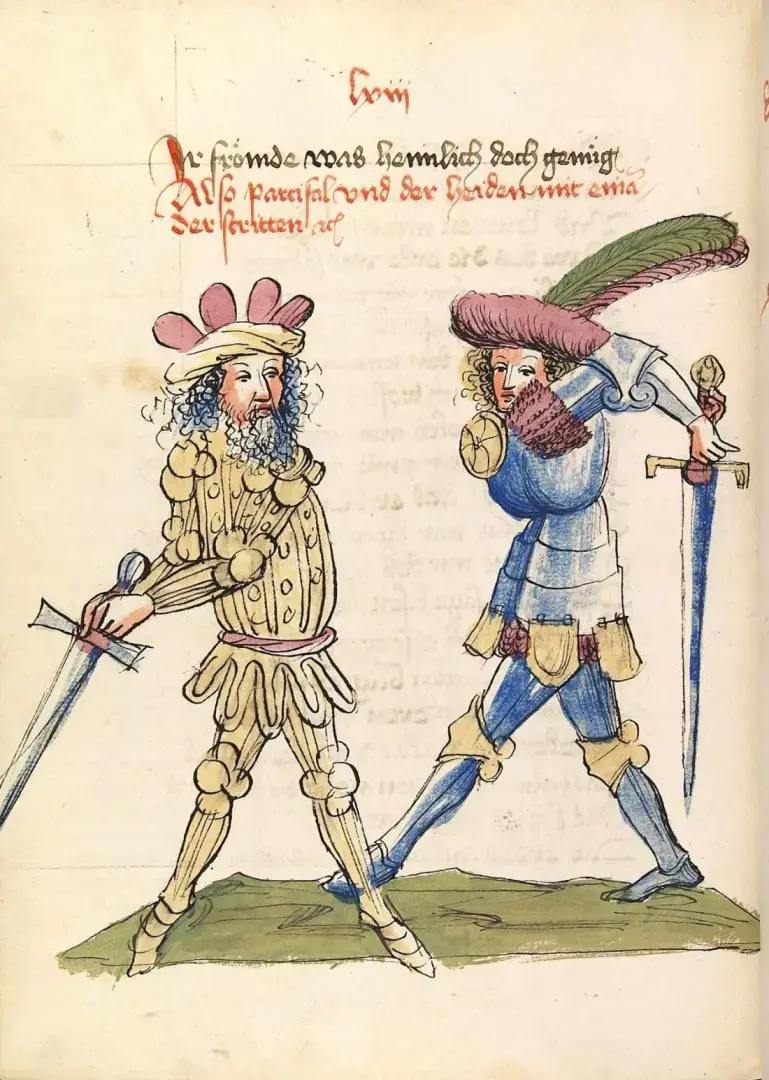 lxviii
Ir frömde was heimlich doch genug
Also partifal vnd der heiden mit eina
der stritten ⁊c